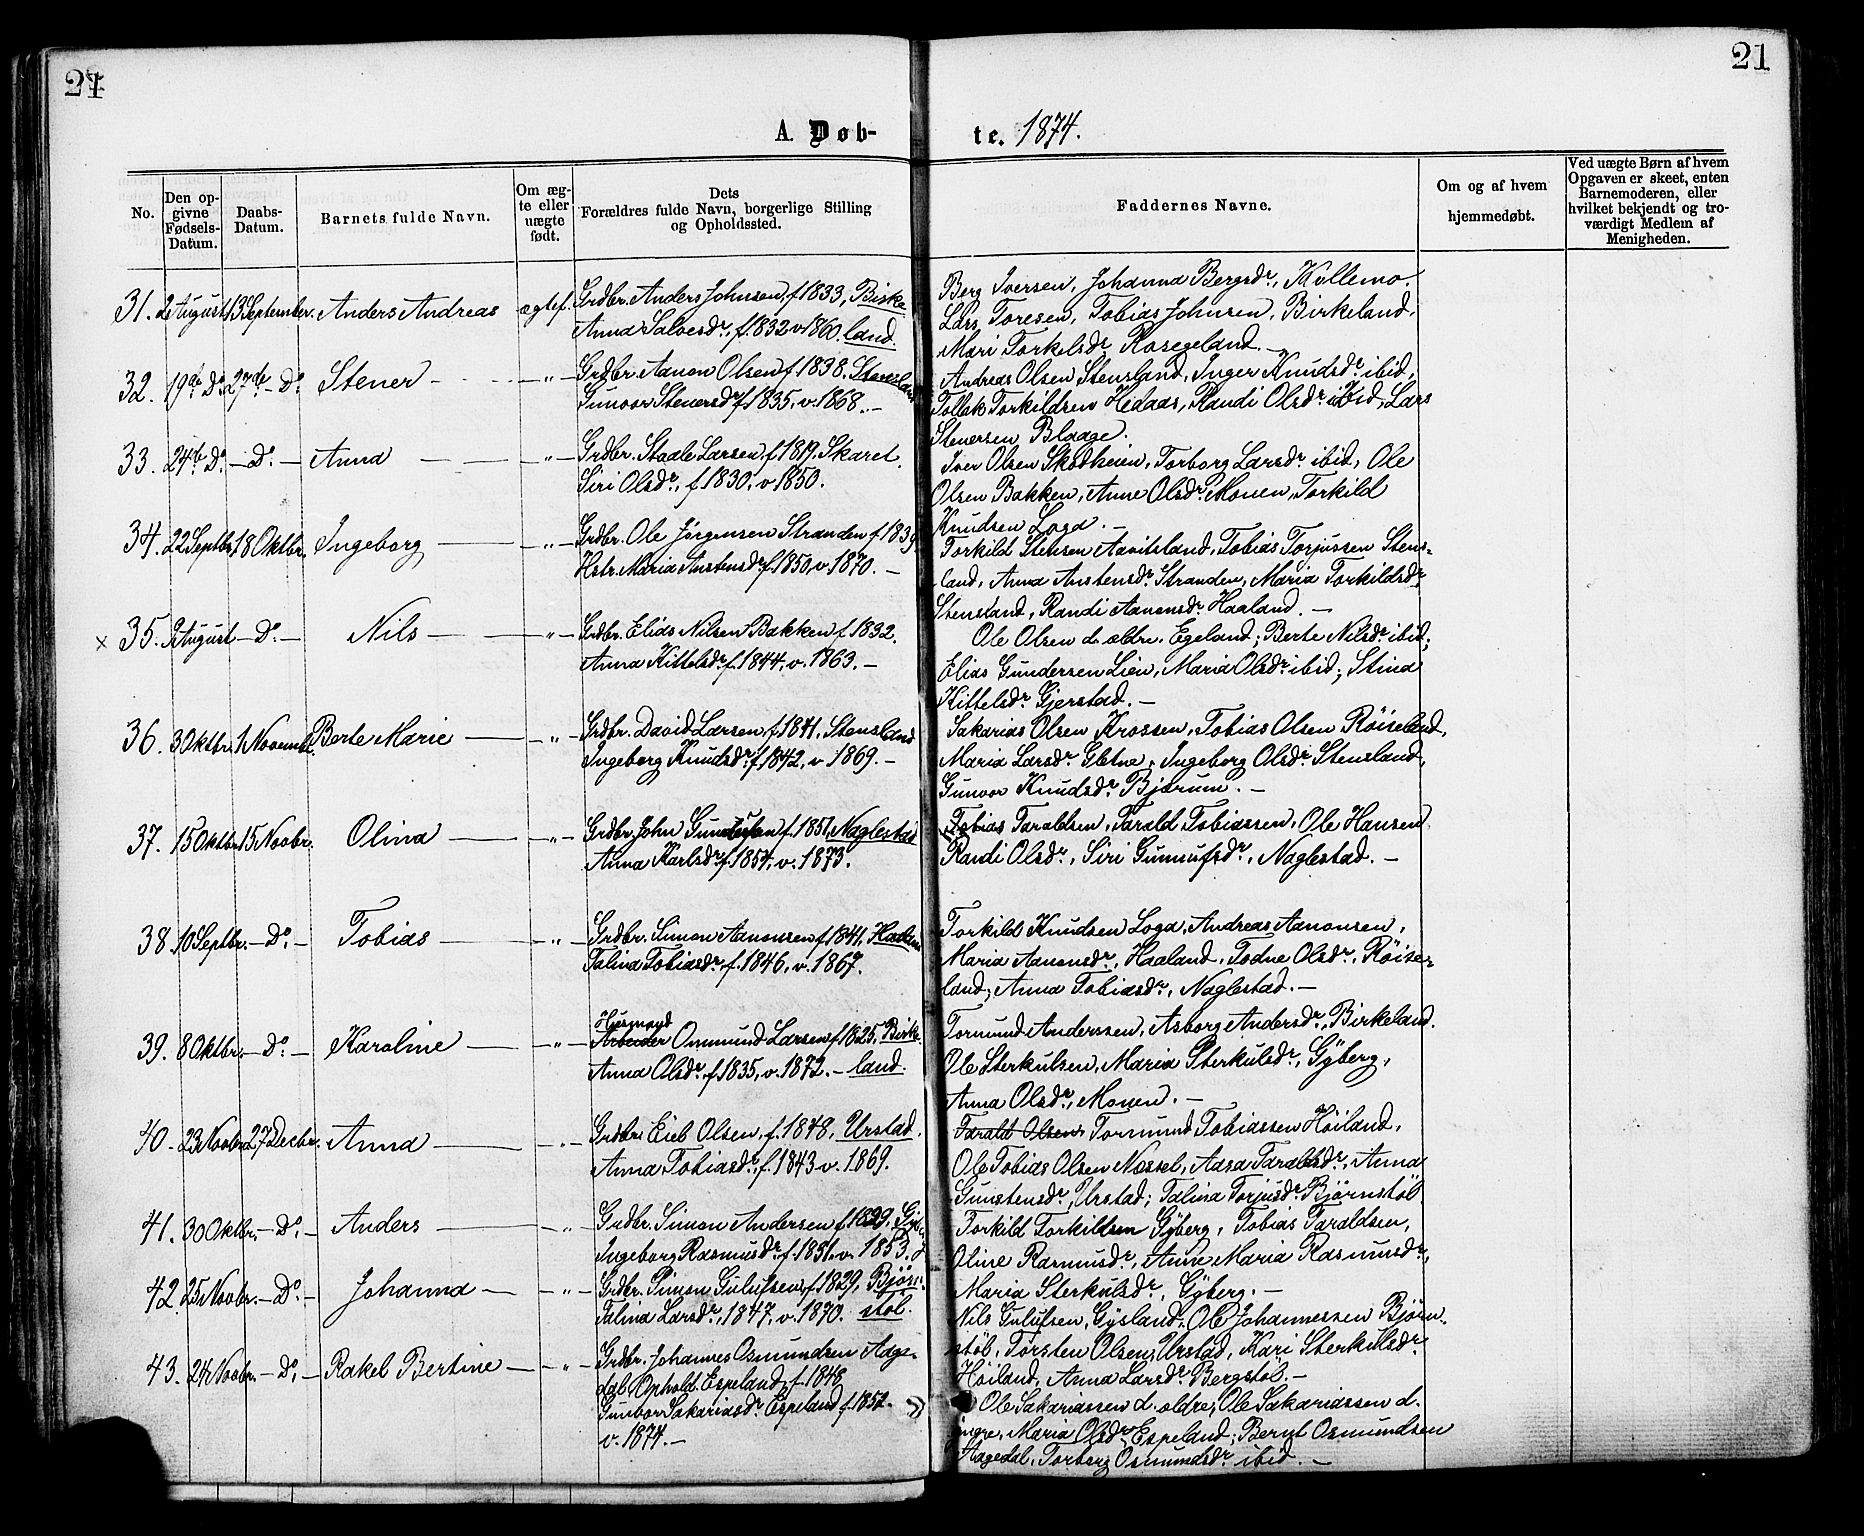 21
21
A. Døb-
te. 1874.
No.
Den op-
givne
Fødsels-
Datum.
Daabs-
Datum.
Barnets fulde Navn.
Om æg-
te eller
uægte
født.
Dets
Forældres fulde Navn, borgerlige Stilling
og Opholdssted.
Faddernes Navne.
Om og af hvem
hjemmedøbt.
Ved uægte Børn af hvem
Opgaven er skeet, enten
Barnemoderen, eller
hvilket bekjendt og tro-
værdigt Medlem af
Menigheden.
31. 2 August 13 September. Anders Andreas ægtef. Grdbr. Anders Johnsen, f. 1833, Birke-
Anna Salvesdr, f. 1832 v. 1860. land.
Berg Iversen, Johanna Bergsdr, Kollemo.
Lars Toresen, Tobias Johnsen, Birkeland,
Mari Torkelsdr Rosegeland. —
32. 19de Do 27de - Do Stener — " — Grdbr. Aanon Olsen f. 1838. Stensland
Gunvor Stenersdr f. 1835, v. 1868. —
Andreas Olsen Stensland, Inger Knudsdr ibid,
Tollak Torkildsen Hedaas, Randi Olsdr ibid, Lars
Stenersen Blaage.
33. 24de Do — Do — Anna — " — Grdbr. Staale Larsen, f. 1819. Skaret.
Siri Olsdr, f. 1830. v 1850.
Iver Olsen Skodheien, Torborg Larsdr ibid, Ole
Olsen Bakken, Anne Olsdr Monen, Torkild
Knudsen Loga. —
34. 22 Septbr. 18 Oktbr. Ingeborg — " — Grdbr. Ole Jørgensen Stranden f. 1839
Hstr. Maria Anstensdr f. 1850, v. 1870. —
Torkild Stensen Aavitsland, Tobias Torjussen Stens-
land, Anna Anstensdr Stranden, Maria Torkildsdr
Stensland, Randi Aanonsdr Haaland. —
x 35. 2 August — Do — Nils — " — Grdbr. Elias Nilsen Bakken f. 1832.
Anna Kittelsdr f. 1844, v. 1863. —
Ole Olsen d. ældre, Egeland; Berte Nilsdr ibid;
Elias Gundersen Lien, Maria Olsdr ibid; Stina
Kittelsdr Gjerstad. —
36. 3 Oktbr. 1 Novemb. Berte Marie — " — Grdbr. David Larsen, f. 1841. Stensland
Ingeborg Knudsdr f. 1842, v. 1869. —
Sakarias Olsen Krossen, Tobias Olsen Röiseland,
Maria Larsdr Gletne, Ingeborg Olsdr Stensland,
Gunvor Knudsdr Bjerum. —
37. 15 Oktbr. 15 Novbr. Olina — " — Grdbr. John f. 1851, Naglestad
Anna Karlsdr f. 1854, v. 1873.
Tobias Taraldsen, Tarald Tobiassen, Ole Hansen
Randi Olsdr, Siri Gunnufsdr, Naglestad. —
38. 10 Septbr. — Do — Tobias — " — Grdbr. Simon Aanonsen f. 1841, Haaland
Talina Tobiasdr, f. 1846, v. 1867.
Torkild Knudsen Loga, Andreas Aanonsen,
Maria Aanonsdr, Haaland, Todne Olsdr, Röise-
land; Anna Tobiasdr, Naglestad. —
39. 8 Oktbr. — Do — Karoline — " — Husmand
Arbeider Ommund Larsen f. 1825, Birke-
Anna Olsdr f. 1835, v. 1872. — land.
Tormund Anderssen, Asborg Andersdr, Birkeland.
Ole Sterkulsen, Maria Sterkulsdr, Gyberg,
Anna Olsdr, Monen. —
40. 23 Novbr. 27 Decbr. Anna — " — Grdbr. Eieb Olsen, f. 1848, Urstad.
Anna Tobiasdr f. 1843 v. 1869.
Tarald Olsen, Tormund Tobiassen Höiland,
Ole Tobias Olsen Nossel, Aasa Taraldsdr, Anna
Gunstensdr, Urstad; Talina Torjusdr Bjørnstöl
41. 30 Oktbr. — Do — Anders — " — Grdbr. Simon Andersen f. 1829, Gy-
Ingeborg Rasmusdr f. 1831, v. 1853.
Torkild Torkildsen Gyberg, Tobias Taraldsen,
Oline Rasmusdr, Anne Maria Rasmusdr,
Maria Sterkulsdr, Gyberg. —
42. 25 Novbr. — Do — Johanna — " — Grdbr. Simon Gulufsen, f. 1829, Bjørn-
Talina Larsdr, 1847, v. 1870. stöl.
Nils Gulufsen, Gysland, Ole Johannessen Bjørn-
stöl, Torsten Olsen, Urstad, Kari Sterkildsdr
Höiland, Anna Larsdr Bergstöl. —
43. 24 Novbr. — Do — Rakel Bertine — " — Grdbr. Johannes Osmundsen Aage-
dal Ophold. Espeland, f. 1848
Gunbor Sakariasdr Espeland f. 1852.
v. 1874. —
Ole Sakariassen d. ældre, Ole Sakariassen d.
yngre, Maria Olsdr Espeland; Bernt Osmundsen
Aagedal, Torberg Osmundsdr ibid. —